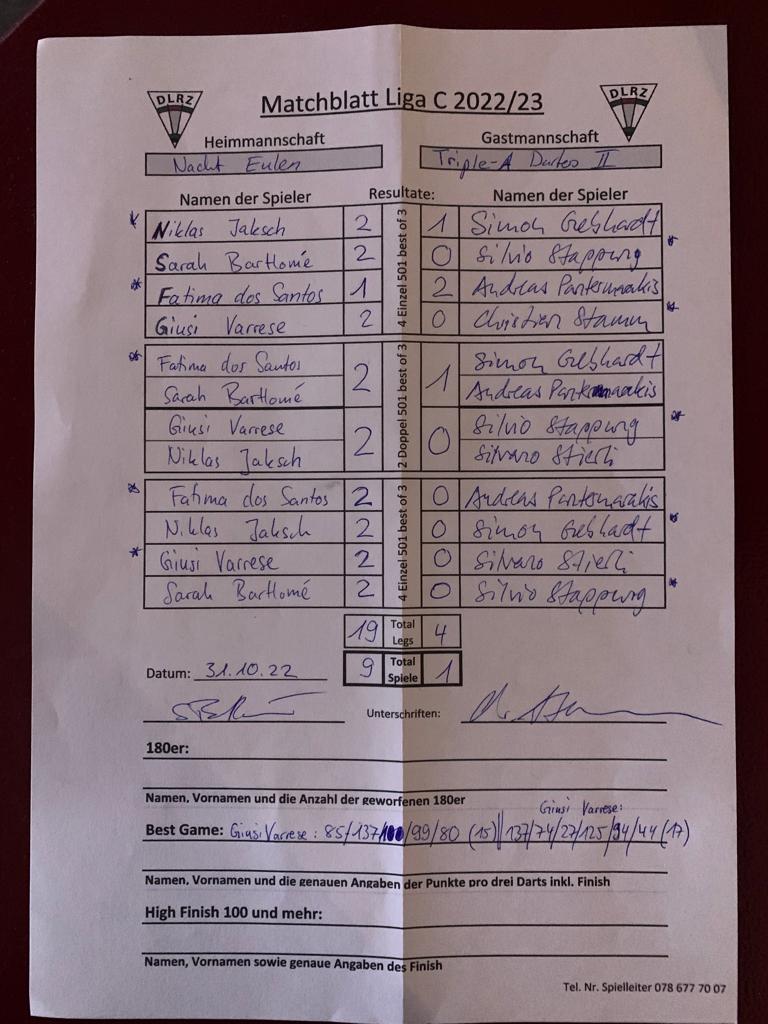 DLRZ Matchblatt Liga C 2022/23 DLRZ
Heimmannschaft Gastmannschaft
Nacht Eulen Triple-A Dartos II
Namen der Spieler Resultate: Namen der Spieler
4 Einzel 501 best of 3
* Niklas Jaksch 2 1 Simon Gebhardt
Sarah Bartlomé 2 0 Silvio Stappung *
* Fatima dos Santos 1 2 Andreas
Giusi Varrese 2 0 Christien Stamm *
2 Doppel 501 best of 3
* Fatima dos Santos 2 1 Simon Gebhardt
Sarah Bartlomé Andreas
Giusi Varrese 2 0 Silvio Stappung *
Niklas Jaksch Silvano Stierli
4 Einzel 501 best of 3
* Fatima dos Santos 2 0 Andreas
Niklas Jaksch 2 0 Simon Gebhardt *
* Giusi Varrese 2 0 Silvano Stierli
Sarah Bartlomé 2 0 Silvio Stappung *
19 Total Legs 4
Datum: 31.10.22 9 Total Spiele 1
Unterschriften:
180er:
Namen, Vornamen und die Anzahl der geworfenen 180er
Giusi Varrese:
Best Game: Giusi Varrese: 85/137/100/99/80 (15) || 137/74/27/125/94/44 (17)
Namen, Vornamen und die genauen Angaben der Punkte pro drei Darts inkl. Finish
High Finish 100 und mehr:
Namen, Vornamen sowie genaue Angaben des Finish
Tel. Nr. Spielleiter 078 677 70 07